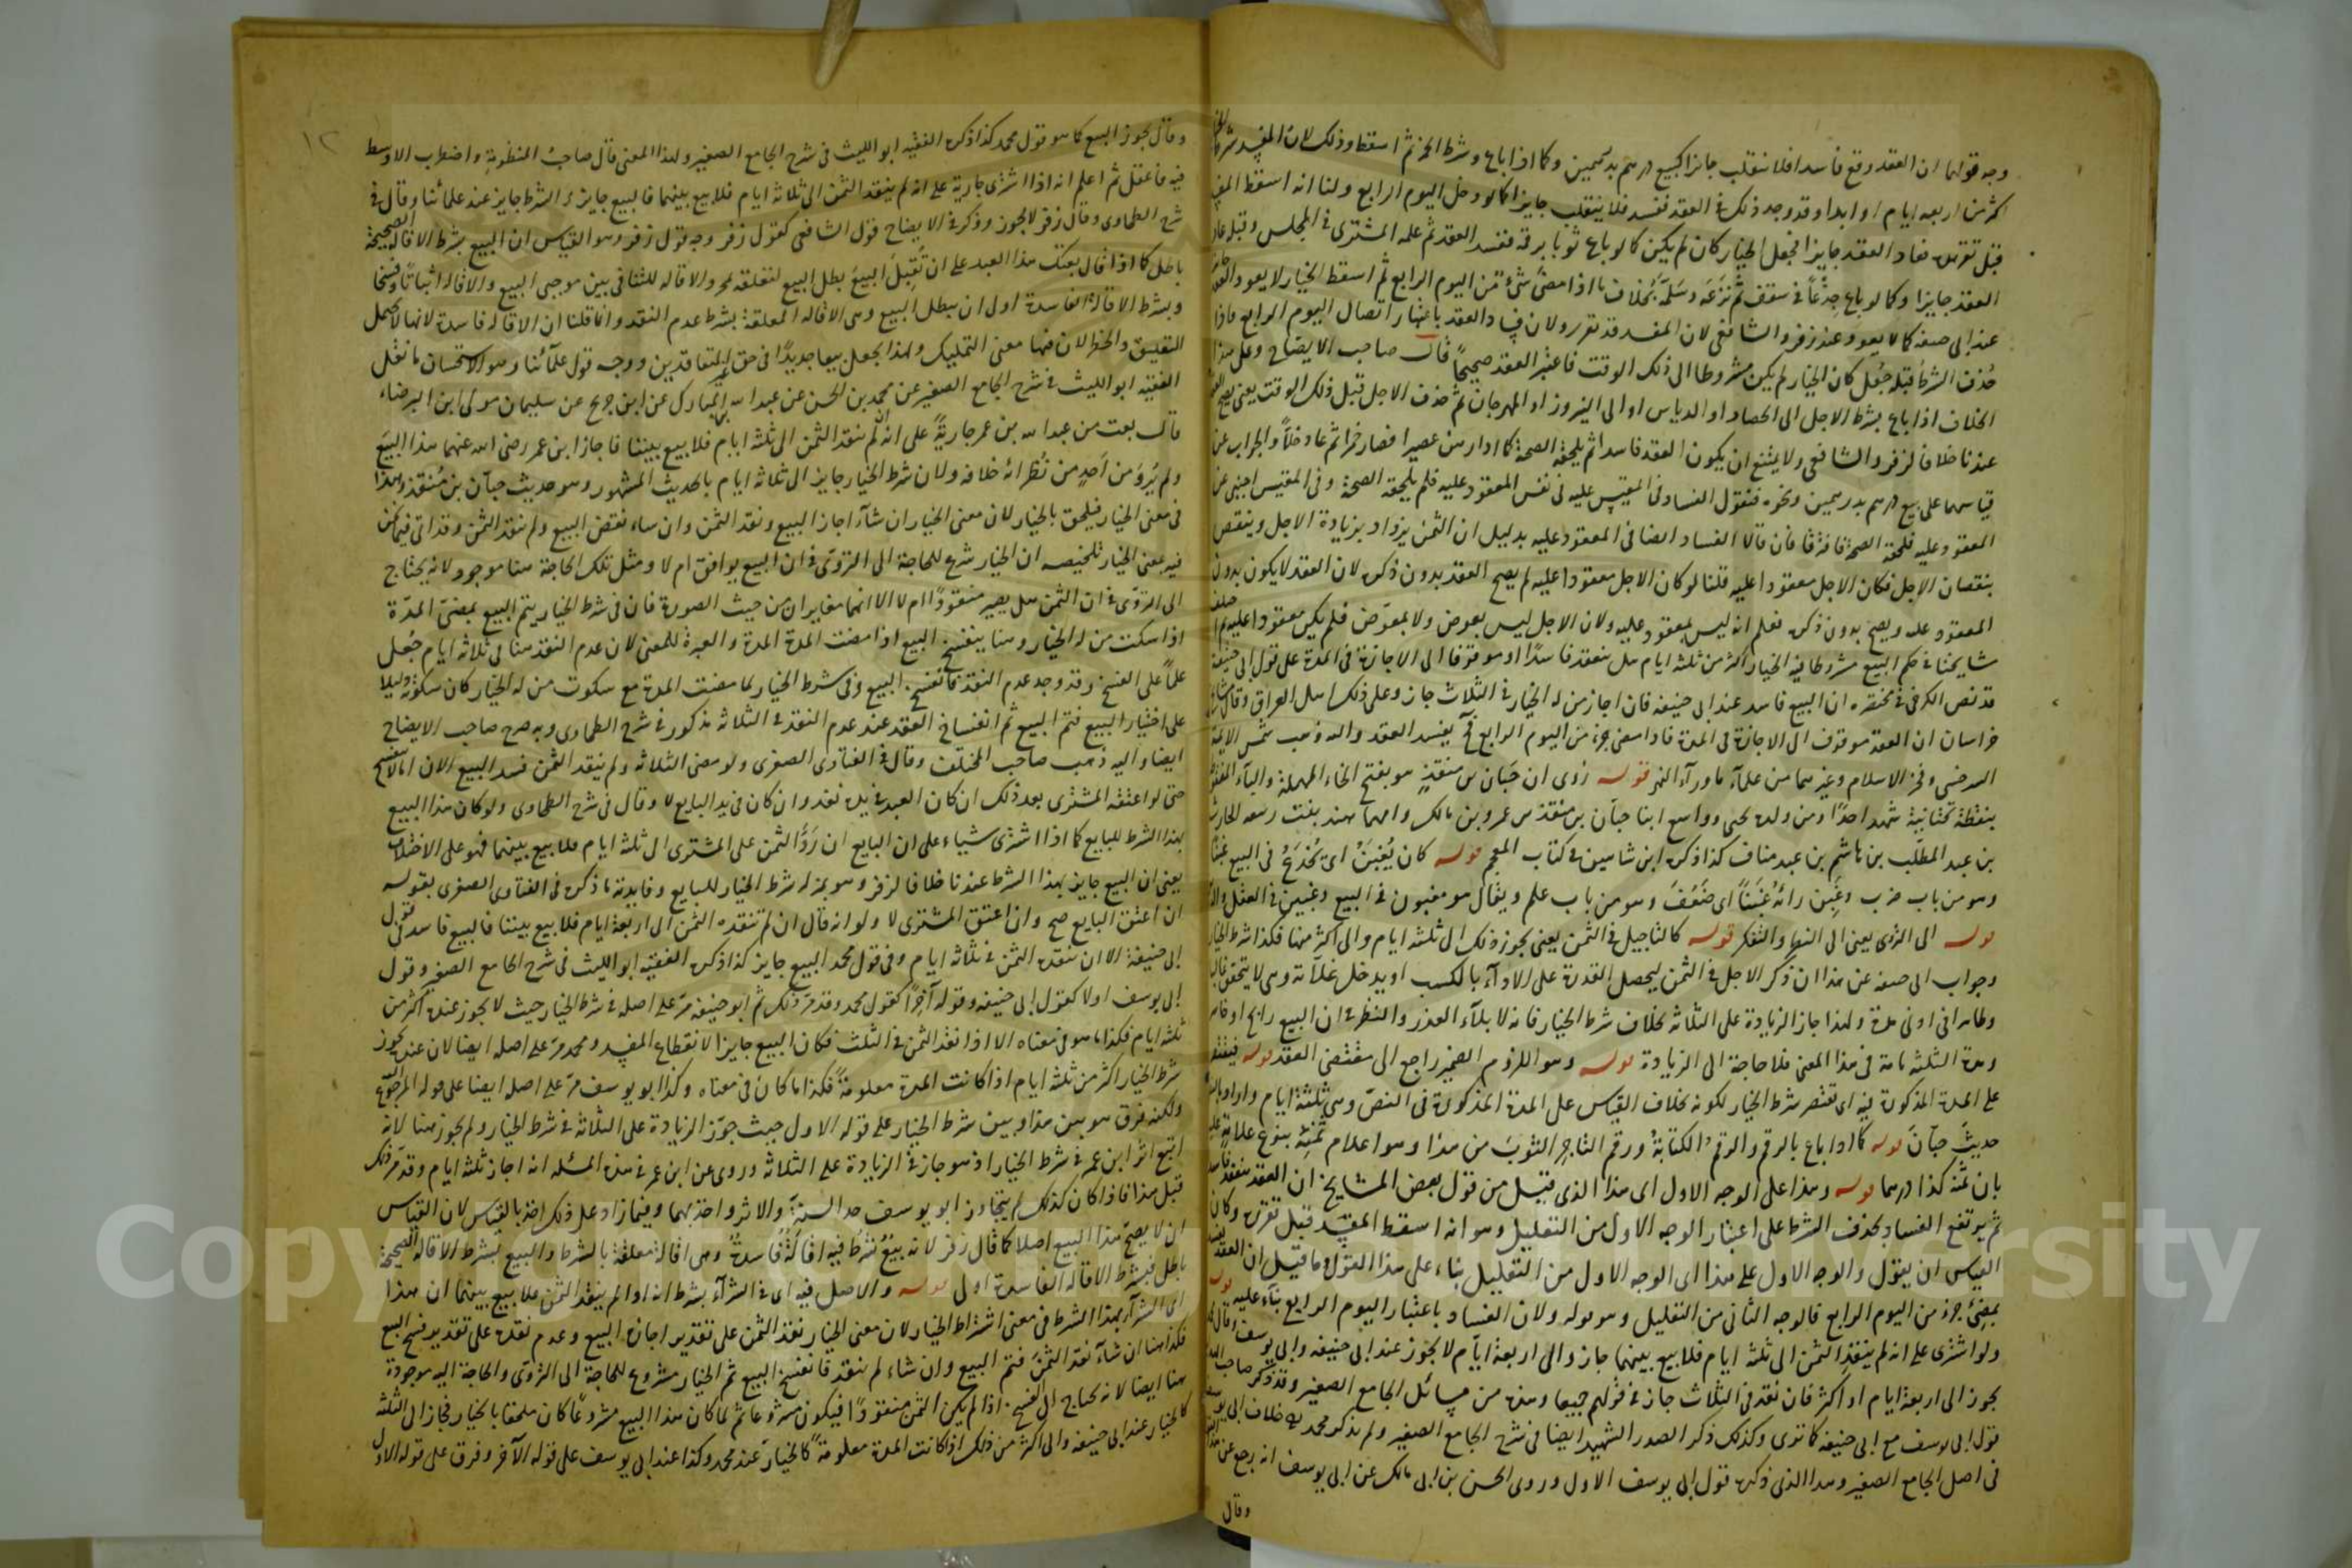 وجه قولهما ان العقد وقع فاسدا فلا ينقلب جايزا كبيع درهم بدرهمين وكما اذا باع وشرط الخمر ثم اسقط وذلك لان المفسد شرط
اكثر من اربعه ايام او ابدا وقد وجد ذلك في العقد ففسد فلا ينقلب جايزا كما لو دخل اليوم الرابع ولنا انه اسقط المفسد
قبل تقرره فعاد العقد جايزا فجعل الخيار كان لم يكن كما لو باع ثوبا برقمه ففسد العقد ثم علمه المشترى في المجلس وقبله عاد
العقد جايزا وكما لو باع جذعا في سقف ثم نزعه وسلمه بخلاف ما اذا مضى شئ من اليوم الرابع ثم اسقط الخيار لا يعود العقد
عند ابى حنيفه كما لا يعود عند زفر والشافعى لان المفسد قد تقرر ولان فساد العقد باعتبار اتصال اليوم الرابع فاذا
حذف الشرط قبله جعل كان الخيار لم يكن مشروطا الى ذلك الوقت فاعتبر العقد صحيحا قال صاحب الايضاح وعلى هذا
الخلاف اذا باع بشرط الاجل الى الحصاد او الدياس او الى النيروز او المهرجان ثم حذف الاجل قبل ذلك الوقت يعنى يصح
عندنا خلافا لزفر والشافعى ولا يمتنع ان يكون العقد فاسدا ثم يلحقه الصحة كما اذا من عصيرا فصار خمرا ثم عاد خلا والجواب عن
قياسهما على بيع درهم بدرهمين ونحوه فنقول الفساد في المقيس عليه في نفس المعقود عليه فلم يلحقه الصحة وفي المقيس اجنبى عن
المعقود عليه فلحقته الصحة فافترقا فان قالا الفساد ايضا في المعقود عليه بدليل ان الثمن يزداد بزيادة الاجل وينتقص
بنقصان الاجل فكان الاجل معقودا عليه قلنا لو كان الاجل معقودا عليه لم يصح العقد بدون ذكره لان العقد لا يكون بدون
المعقود عليه ويصح بدون ذكره فعلم انه ليس بمعقود عليه ولان الاجل ليس بعوض ولا بمعوض فلم يكن معقودا عليه
مشايخنا في حكم البيع مشروطا فيه الخيار اكثر من ثلثة ايام هل ينعقد فاسدا او موقوفا الى الاجازة في المدة على قول ابى حنيفة
قد نص الكرخى في مختصره ان البيع فاسد عند ابى حنيفه فان اجاز من له الخيار في الثلاث جاز وعلى ذلك اهل العراق وقال مشايخ
خراسان ان العقد موقوف الى الاجازة في المدة فاذا مضى جزء من اليوم الرابع يفسد العقد واليه ذهب شمس الايمة
السرخسى وفخر الاسلام وغيرهما من علماء ما وراء النهر قوله روى ان حبان بن منقذ هو بفتح الحاء المهملة والباء المنقوطة
بنقطة تحتانية شهد احدا ومن ولده يحيى وواسع ابنا حبان بن منقذ بن عمرو بن مالك وامهما هند بنت ربيعه الحارث
بن عبد المطلب بن هاشم بن عبد مناف كذا ذكره ابن شاهين في كتاب المعجم قوله كان يغبن اى يخدع في البيع غبنا
وهو من باب ضرب وغبن رائه غبنا اى ضعف وهو من باب علم ويقال هو مغبون في البيع وغبين في العقل
قوله الى التروى يعنى الى النهار والتفكر قوله كالتاجيل في الثمن يعنى يجوز ذلك الى ثلثه ايام والى اكثر منها فكذا شرط الخيار
وجواب ابى حنيفه عن هذا ان ذكر الاجل في الثمن ليحصل القدرة على الاداء بالكسب او يدخل غلاته وهى لا يتحقق غالبا
وظاهرا في ادنى مدة ولهذا جاز الزيادة على الثلاثه بخلاف شرط الخيار فانه لابلاء العذر والنظر في ان البيع رابح او خاسر
ومدة الثلثه تامة في هذا المعنى فلا حاجة الى الزيادة قوله وهو اللزوم الضمير راجع الى مقتضى العقد قوله فيقتصر
على المدة المذكورة فيه اى يقتصر شرط الخيار لكونه بخلاف القياس على المدة المذكورة في النص وهى ثلثة ايام واراد بالنص
حديث حبان قوله كما اذا باع بالرقم والرقم الكتابة ورقم التاجر الثوب من هذا وهو اعلام ثمنه بنوع علامة
بان ثمنه كذا درهما قوله وهذا على الوجه الاول اى هذا الذى قيل من قول بعض المشايخ ان العقد ينعقد فاسدا
ثم يرتفع الفساد بحذف الشرط على اعتبار الوجه الاول من التعليل وهو انه اسقط المفسد قبل تقرره وكان
القياس ان يقول والوجه الاول على هذا اى الوجه الاول من التعليل بناء على هذا القول وما قيل ان العقد يفسد
بمضى جزء من اليوم الرابع فالوجه الثانى من التعليل وهو قوله ولان الفساد باعتبار اليوم الرابع بناء عليه قوله
ولو اشترى على انه لم ينقد الثمن الى ثلثة ايام فلا بيع بينهما جاز والى اربعة ايام لا يجوز عند ابى حنيفه وابى يوسف وقال محمد
يجوز الى اربعة ايام او اكثر فان نقد في الثلاث جاز في قولهم جميعا وهذه من مسائل الجامع الصغير وقد ذكر صاحب الهداية
قول ابى يوسف مع ابى حنيفه كما ترى وكذلك ذكر الصدر الشهيد ايضا في شرح الجامع الصغير ولم يذكر محمد خلاف ابى يوسف
في اصل الجامع الصغير وهذا الذى ذكره قول ابى يوسف الاول وروى الحسن بن ابى مالك عن ابى يوسف انه رجع عن هذا
وقال
١٢
وقال يجوز البيع كما هو قول محمد كذا ذكره الفقيه ابو الليث في شرح الجامع الصغير ولهذا المعنى قال صاحب المنظومة واضطرب الاوسط
فيه فاعقل ثم اعلم انه اذا اشترى جارية على انه لم ينقد الثمن الى ثلاثة ايام فلا بيع بينهما فالبيع جايز والشرط جايز عند علمائنا وقال في
شرح الطحاوى وقال زفر لا يجوز وذكر في الايضاح قول الشافعى كقول زفر وجه قول زفر وهو القياس ان البيع بشرط الاقالة الصحيحة
باطل كما اذا قال بعتك هذا العبد على ان تقيل البيع بطل البيع لتعلقه بشرط الاقاله للتنافى بين موجبى البيع والاقالة اثباتا وفسخا
وبشرط الاقالة الفاسدة اولى ان يبطل البيع وهى الاقالة المعلقة بشرط عدم النقد وانما قلنا ان الاقاله فاسدة لانها لا تحتمل
التعليق والخطر لان فيها معنى التمليك ولهذا يجعل بيعا جديدا في حق غير المتعاقدين ووجه قول علمائنا وهو الاستحسان ما نقل
الفقيه ابو الليث في شرح الجامع الصغير عن محمد بن الحسن عن عبد الله بن المبارك عن ابن جريج عن سليمان مولى ابن البرصاء
قال بعت من عبد الله بن عمر جارية على انه لم ينقد الثمن الى ثلثة ايام فلا بيع بيننا فاجاز ابن عمر رضى الله عنهما هذا البيع
ولم يرو من احد من نظرائه خلافه ولان شرط الخيار جايز الى ثلاثة ايام بالحديث المشهور وهو حديث حبان بن منقذ وهذا
في معنى الخيار فيلحق بالخيار لان معنى الخيار ان شاء اجاز البيع ونقد الثمن وان شاء نقض البيع ولم ينقد الثمن وقد اتى فيما نحن
فيه بمعنى الخيار تلخيصه ان الخيار شرع للحاجة الى التروى في ان البيع يوافق ام لا ومثل تلك الحاجة هنا موجود لانه يحتاج
الى التروى في ان الثمن هل يصير منقودا ام لا الا انهما مغايران من حيث الصورة فان في شرط الخيار يتم البيع بمضى المدة
اذا سكت من له الخيار وهنا ينفسخ البيع اذا مضت المدة والعبرة للمعنى لان عدم النقد هنا في ثلاثة ايام جعل
علما على الفسخ وقد وجد عدم النقد فانفسخ البيع وفي شرط الخيار لما مضت المدة مع سكوت من له الخيار كان سكوته دليلا
على اختيار البيع فتم البيع ثم انفساخ العقد عند عدم النقد في الثلاثة مذكور في شرح الطحاوى وبه صرح صاحب الايضاح
ايضا واليه ذهب صاحب المختلف وقال في الفتاوى الصغرى ولو مضى الثلاثة ولم ينقد الثمن فسد البيع الان اما لا ينفسخ
حتى لو اعتقه المشترى بعد ذلك ان كان العبد في يده نفذ وان كان في يد البايع لا وقال في شرح الطحاوى ولو كان هذا البيع
بهذا الشرط للبايع كما اذا اشترى شياء على ان البايع ان رد الثمن على المشترى الى ثلثة ايام فلا بيع بينهما فهو على الاختلاف
يعنى ان البيع جايز بهذا الشرط عندنا خلافا لزفر وهو بمنزلة شرط الخيار للبايع وفايدته ما ذكره في الفتاوى الصغرى بقوله
ان اعتق البايع صح وان اعتق المشترى لا ولو انه قال ان لم تنقده الثمن الى اربعة ايام فلا بيع بيننا فالبيع فاسد في قول
ابى حنيفة الا ان ينقده الثمن في ثلاثة ايام وفي قول محمد البيع جايز كذا ذكره الفقيه ابو الليث في شرح الجامع الصغير وقول
ابى يوسف اولا كقول ابى حنيفه وقوله آخرا كقول محمد وقد مر ذلك ثم ابو حنيفة مر على اصله في شرط الخيار حيث لا يجوز عنده اكثر من
ثلثة ايام فكذا ما هو في معناه الا اذا نقد الثمن في الثلث فكان البيع جايزا لانقطاع المفسد ومحمد مر على اصله ايضا لان عنده يجوز
شرط الخيار اكثر من ثلثة ايام اذا كانت المدة معلومة فكذا ما كان في معناه وكذا ابو يوسف مر على اصله ايضا على قوله المرجوع اليه
ولكنه فرق هو بين هذا وبين شرط الخيار على قوله الاول حيث جوز الزيادة على الثلاثة في شرط الخيار ولم يجوز هنا لانه
اتبع اثر ابن عمر في شرط الخيار اذ هو جاز في الزيادة على الثلاثة وروى عن ابن عمر في هذه المسئله انه اجاز ثلثة ايام وقد مر ذلك
قبل هذا فاذا كان كذلك لم يتجاوز ابو يوسف حد السنة والاثر واخذ بهما وفيما زاد على ذلك اخذ بالقياس لان القياس
ان لا يصح هذا البيع اصلا كما قال زفر لانه بيع شرط فيه اقالة فاسدة وهى اقالة معلقة بالشرط والبيع بشرط الاقاله الصحيحة
باطل فبشرط الاقاله الفاسدة اولى قوله والاصل فيه اى في الشراء بشرط انه اذا لم ينقد الثمن فلا بيع بينهما ان هذا
اى الشراء بهذا الشرط في معنى اشتراط الخيار لان معنى الخيار نقد الثمن على تقدير اجازة البيع وعدم نقده على تقدير فسخ البيع
فكذا هنا ان شاء نقد الثمن فتم البيع وان شاء لم ينقد فانفسخ البيع ثم الخيار مشروع للحاجة الى التروى والحاجة اليه موجودة
هنا ايضا لانه يحتاج الى الفسخ اذا لم يكن الثمن منقودا فيكون مشروعا ثم لما كان هذا البيع مشروعا كان ملحقا بالخيار فجاز الى الثلثه
كالخيار عند ابى حنيفه والى اكثر من ذلك اذا كانت المدة معلومة كالخيار عند محمد وكذا عند ابى يوسف على قوله الآخر وفرق على قوله الاول
Copyright © King Saud University